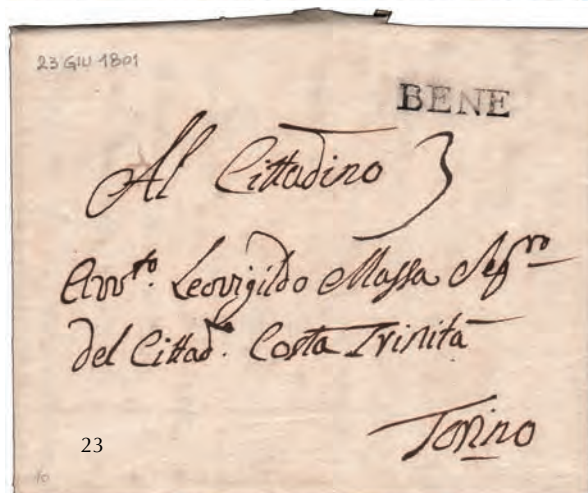 23 GIU 1801
BENE
Al Cittadino 3
Avv.to Leovigildo Massa Seg.ro
del Cittad.o Costa Trinità
Torino
23
10